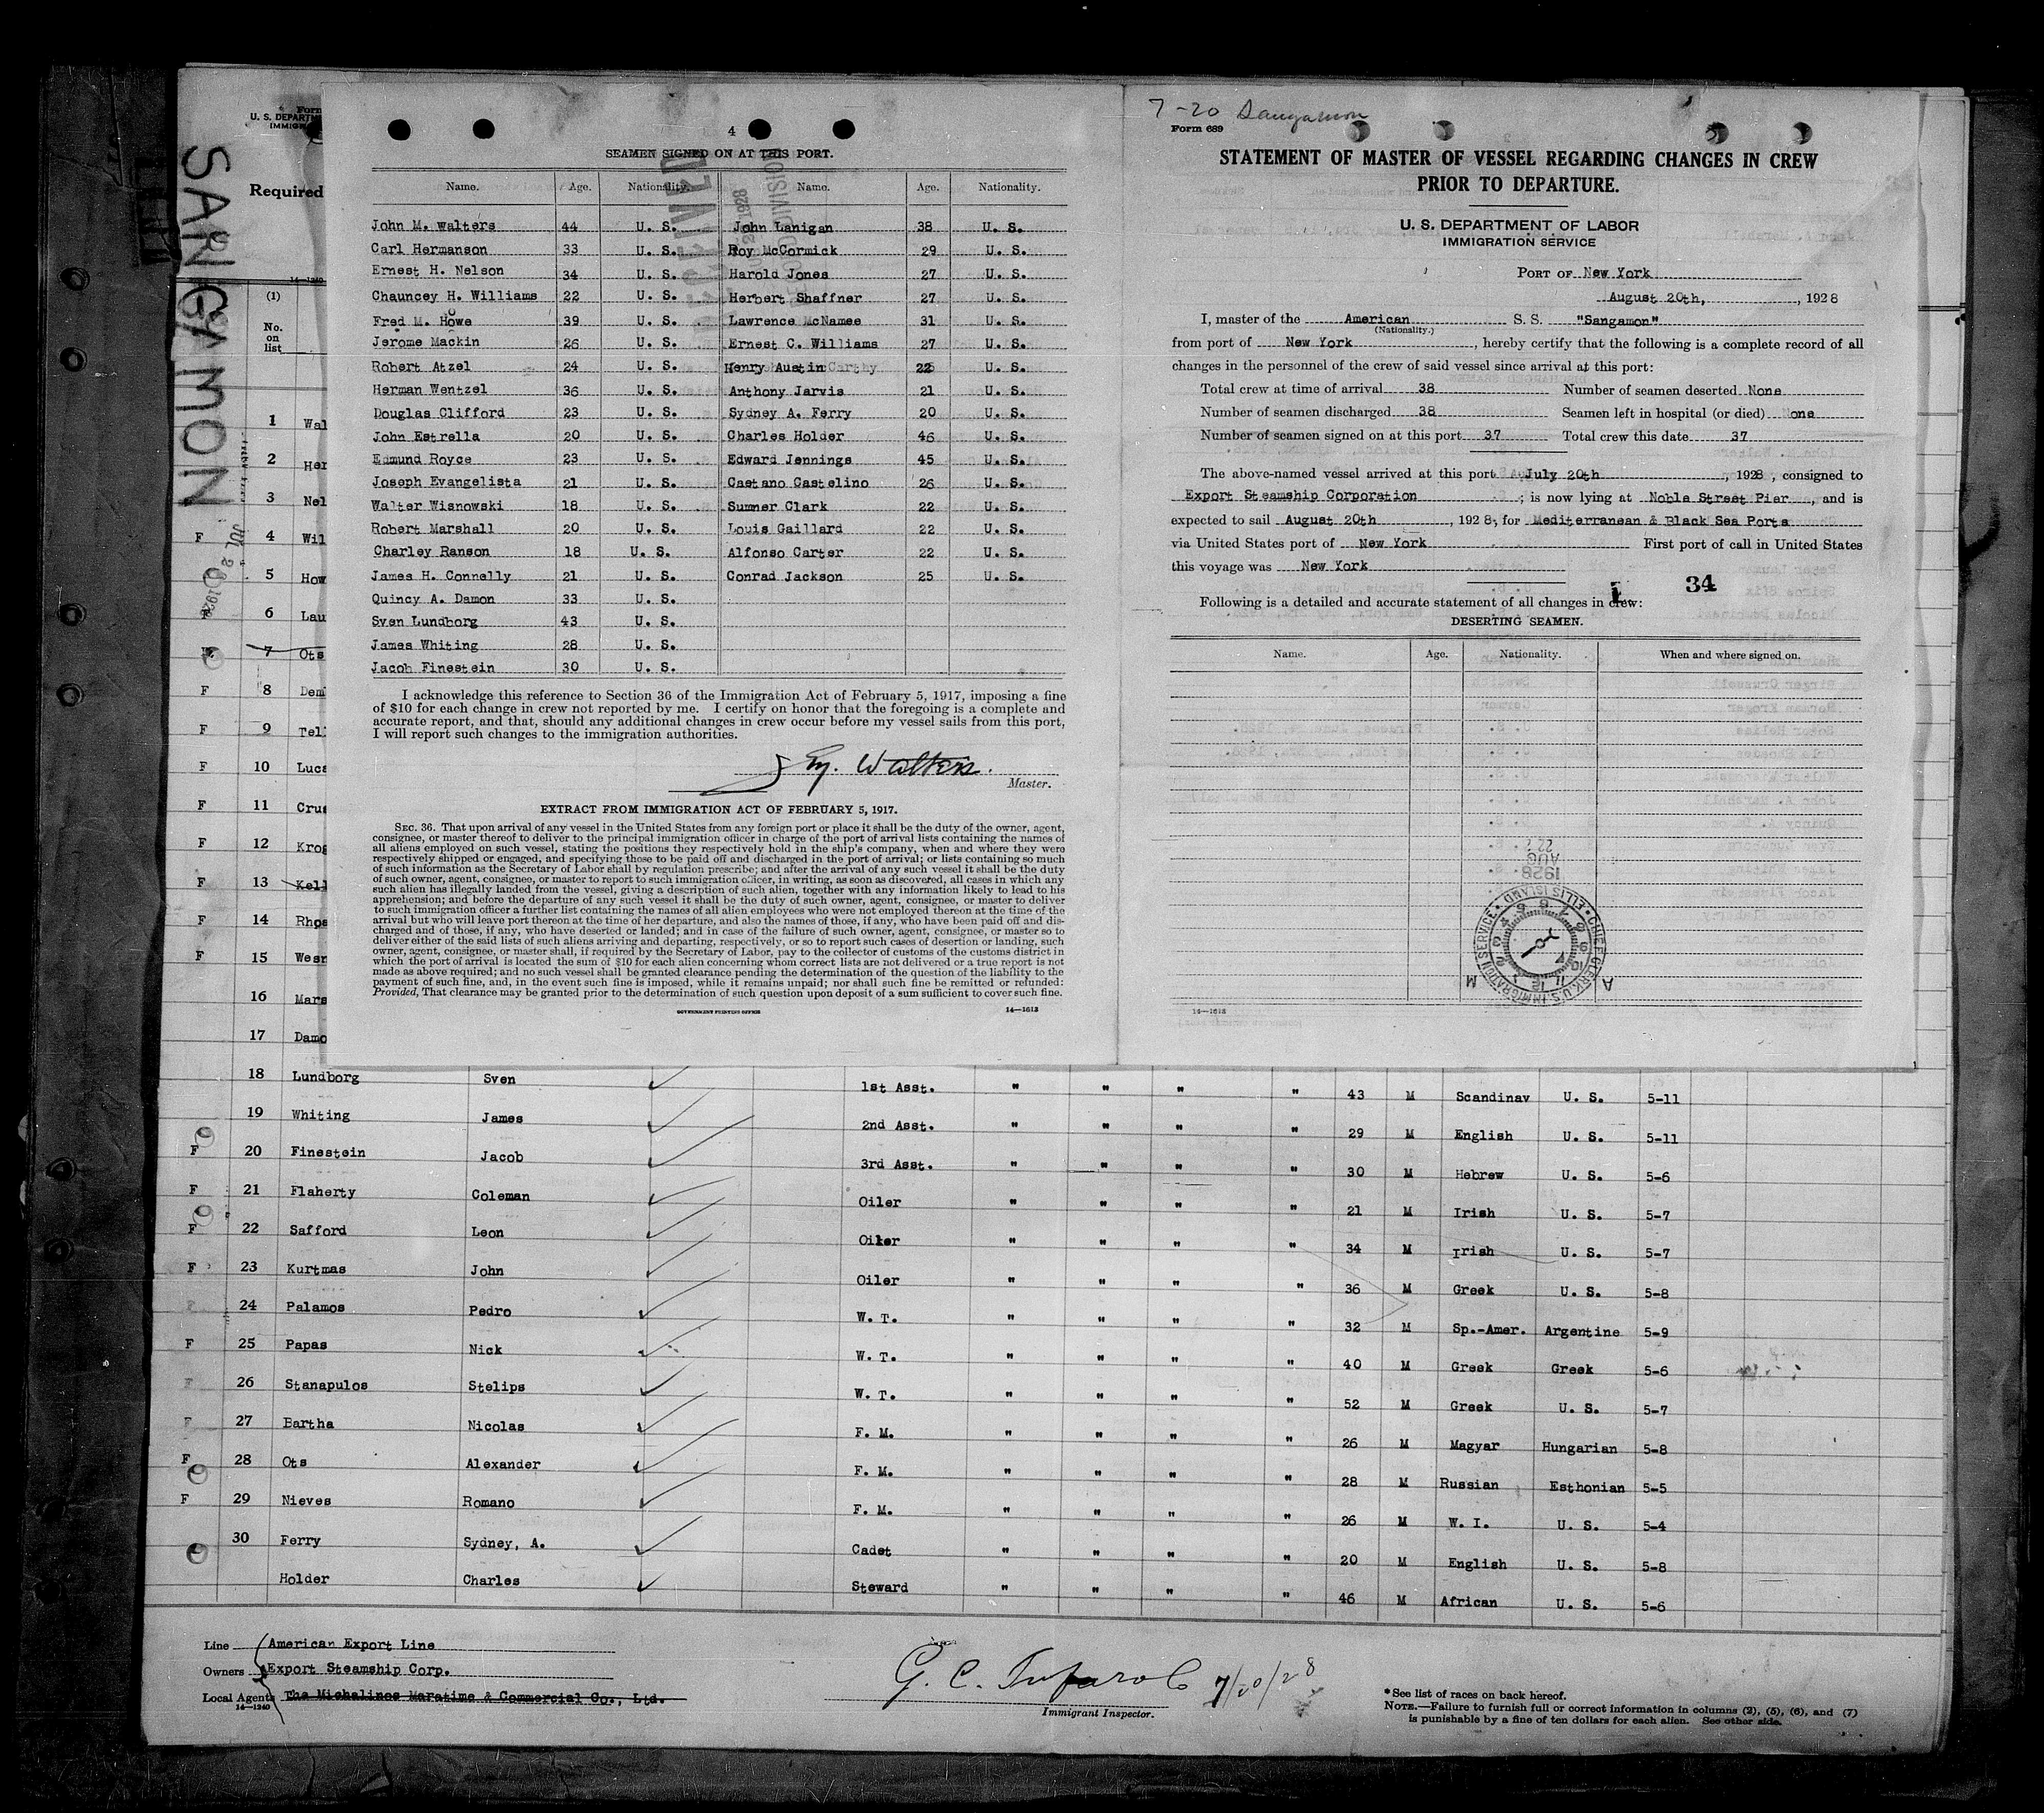 SANGAMON
JUL 20 1928
Form
U. S. DEPARTM
IMMIGR
Required
14-1240
(1)
No.
on
list
1 Wal
2 Her
3 Nel
F 4 Wil
5 How
F 6 Lau
7 Ots
F 8 Dem
F 9 Tell
F 10 Luca
F 11 Crus
F 12 Krog
F 13 Kell
F 14 Rhos
F 15 Wesn
16 Mars
17 Damo
4
SEAMEN SIGNED ON AT THIS PORT.
Name. Age. Nationality. Name. Age. Nationality.
John M. walters 44 U. S. John Lanigan 38 U. S.
Carl Hermanson 33 U. S. Roy McCormick 29 U. S.
Ernest H. Nelson 34 U. S. Harold Jones 27 U. S.
Chauncey H. Williams 22 U. S. Herbert Shaffner 27 U. S.
Fred M. Howe 39 U. S. Lawrence McNamee 31 U. S.
Jerome Mackin 26 U. S. Ernest C. Williams 27 U. S.
Robert Atzel 24 U. S. Henry Austin 22 U. S.
Herman Wentzel 36 U. S. Anthony Jarvis 21 U. S.
Douglas Clifford 23 U. S. Sydney A. Ferry 20 U. S.
John Estrella 20 U. S. Charles Holder 46 U. S.
Edmund Royce 23 U. S. Edward Jennings 45 U. S.
Joseph Evangelista 21 U. S. Caetano Castelino 26 U. S.
Walter Wisnowski 18 U. S. Sumner Clark 22 U. S.
Robert Marshall 20 U. S. Louis Gaillard 22 U. S.
Charley Ranson 18 U. S. Alfonso Carter 22 U. S.
James H. Connelly 21 U. S. Conrad Jackson 25 U. S.
Quincy A. Damon 33 U. S.
Sven Lundborg 43 U. S.
James Whiting 28 U. S.
Jacob Finestein 30 U. S.
I acknowledge this reference to Section 36 of the Immigration Act of February 5, 1917, imposing a fine
of $10 for each change in crew not reported by me. I certify on honor that the foregoing is a complete and
accurate report, and that, should any additional changes in crew occur before my vessel sails from this port,
I will report such changes to the immigration authorities.
J M. Walters.
Master.
EXTRACT FROM IMMIGRATION ACT OF FEBRUARY 5, 1917.
SEC. 36. That upon arrival of any vessel in the United States from any foreign port or place it shall be the duty of the owner, agent,
consignee, or master thereof to deliver to the principal immigration officer in charge of the port of arrival lists containing the names of
all aliens employed on such vessel, stating the positions they respectively hold in the ship's company, when and where they were
respectively shipped or engaged, and specifying those to be paid off and discharged in the port of arrival; or lists containing so much
of such information as the Secretary of Labor shall by regulation prescribe; and after the arrival of any such vessel it shall be the duty
of such owner, agent, consignee, or master to report to such immigration officer, in writing, as soon as discovered, all cases in which any
such alien has illegally landed from the vessel, giving a description of such alien, together with any information likely to lead to his
apprehension; and before the departure of any such vessel it shall be the duty of such owner, agent, consignee, or master to deliver
to such immigration officer a further list containing the names of all alien employees who were not employed thereon at the time of the
arrival but who will leave port thereon at the time of her departure, and also the names of those, if any, who have been paid off and dis-
charged and of those, if any, who have deserted or landed; and in case of the failure of such owner, agent, consignee, or master so to
deliver either of the said lists of such aliens arriving and departing, respectively, or so to report such cases of desertion or landing, such
owner, agent, consignee, or master shall, if required by the Secretary of Labor, pay to the collector of customs of the customs district in
which the port of arrival is located the sum of $10 for each alien concerning whom correct lists are not delivered or a true report is not
made as above required; and no such vessel shall be granted clearance pending the determination of the question of the liability to the
payment of such fine, and, in the event such fine is imposed, while it remains unpaid; nor shall such fine be remitted or refunded:
Provided, That clearance may be granted prior to the determination of such question upon deposit of a sum sufficient to cover such fine.
GOVERNMENT PRINTING OFFICE 14-1613
7-20 Sangamon
Form 689
STATEMENT OF MASTER OF VESSEL REGARDING CHANGES IN CREW
PRIOR TO DEPARTURE.
U. S. DEPARTMENT OF LABOR
IMMIGRATION SERVICE
PORT OF New York
August 20th, , 1928
I, master of the American S. S. "Sangamon"
(Nationality.)
from port of New York, hereby certify that the following is a complete record of all
changes in the personnel of the crew of said vessel since arrival at this port:
Total crew at time of arrival 38 Number of seamen deserted None
Number of seamen discharged 38 Seamen left in hospital (or died) None
Number of seamen signed on at this port 37 Total crew this date 37
The above-named vessel arrived at this port July 20th, 1928, consigned to
Export Steamship Corporation; is now lying at Noble Street Pier, and is
expected to sail August 20th, 1928, for Mediterranean & Black Sea Ports
via United States port of New York First port of call in United States
this voyage was New York
34
Following is a detailed and accurate statement of all changes in crew:
DESERTING SEAMEN.
Name. Age. Nationality. When and where signed on.
1928 AUG 22
CHIEF CLERK, U.S. IMMIGRATION SERVICE • ELLIS ISLAND •
A M
14-1613
18 Lundborg Sven 1st Asst. " " " " 43 M Scandinav U. S. 5-11
19 Whiting James 2nd Asst. " " " " 29 M English U. S. 5-11
F 20 Finestein Jacob 3rd Asst. " " " " 30 M Hebrew U. S. 5-6
F 21 Flaherty Coleman Oiler " " " " 21 M Irish U. S. 5-7
F 22 Safford Leon Oiler " " " " 34 M Irish U. S. 5-7
F 23 Kurtmas John Oiler " " " " 36 M Greek U. S. 5-8
F 24 Palamos Pedro W. T. " " " " 32 M Sp.-Amer. Argentine 5-9
F 25 Papas Nick W. T. " " " " 40 M Greek Greek 5-6
F 26 Stanapulos Stelips W. T. " " " " 52 M Greek U. S. 5-7
F 27 Bartha Nicolas F. M. " " " " 26 M Magyar Hungarian 5-8
F 28 Ots Alexander F. M. " " " " 28 M Russian Esthonian 5-5
F 29 Nieves Romano F. M. " " " " 26 M W. I. U. S. 5-4
30 Ferry Sydney, A. Cadet " " " " 20 M English U. S. 5-8
Holder Charles Steward " " " " 46 M African U. S. 5-6
Line American Export Line
Owners Export Steamship Corp.
Local Agents The Michalinos Maratime & Commercial Co., Ltd.
14-1240
G. C. 7/20/28
Immigrant Inspector.
*See list of races on back hereof.
NOTE.—Failure to furnish full or correct information in columns (2), (5), (6), and (7)
is punishable by a fine of ten dollars for each alien. See other side.